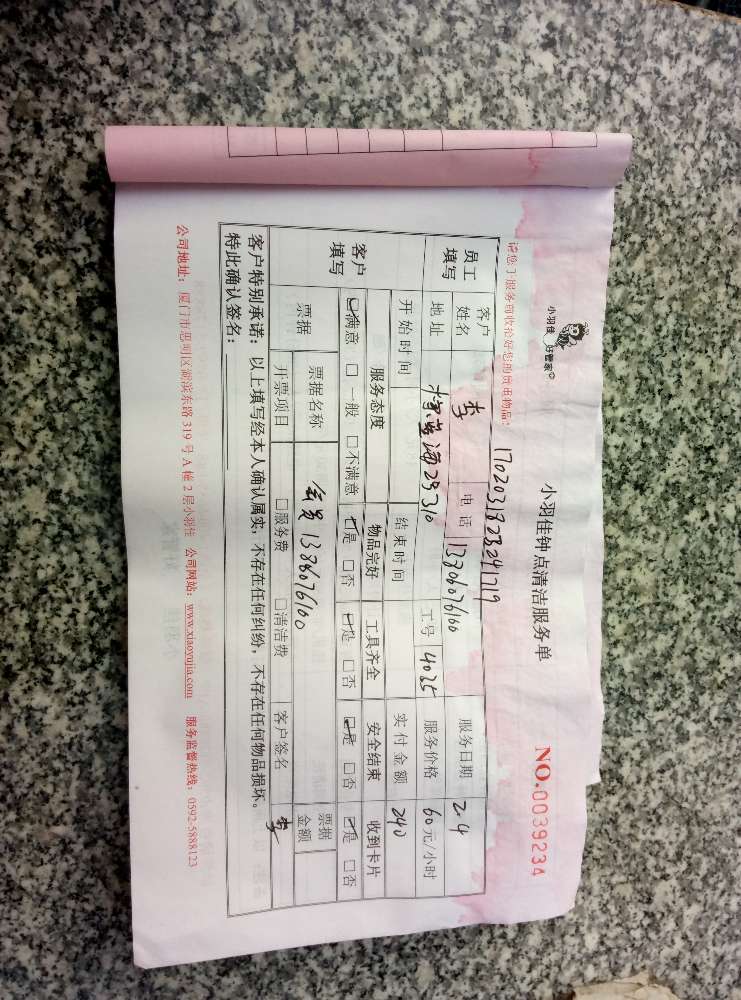 小羽佳 好管家
小羽佳钟点清洁服务单
NO.0039234
请您于服务前收洽好您的贵重物品!
1702031823241719
员工填写 客户姓名 李 电话 13806076100 服务日期 2.4
地址 海29310 工号 4025 服务价格 60元/小时
开始时间 结束时间 实付金额 240
客户填写 服务态度 物品完好 工具齐全 安全结束 收到卡片
☑满意 □一般 □不满意 ☑是 □否 ☑是 □否 ☑是 □否 ☑是 □否
票据 票据名称 会员 1380676100 票据金额
开票项目 □服务费 □清洁费 客户签名 李
客户特别承诺:以上填写经本人确认属实,不存在任何纠纷,不存在任何物品损坏。
特此确认签名:
公司地址:厦门市思明区湖滨东路319号A幢2层小羽佳 公司网站:www.xiaoyujia.com 服务监督热线:0592-5888123